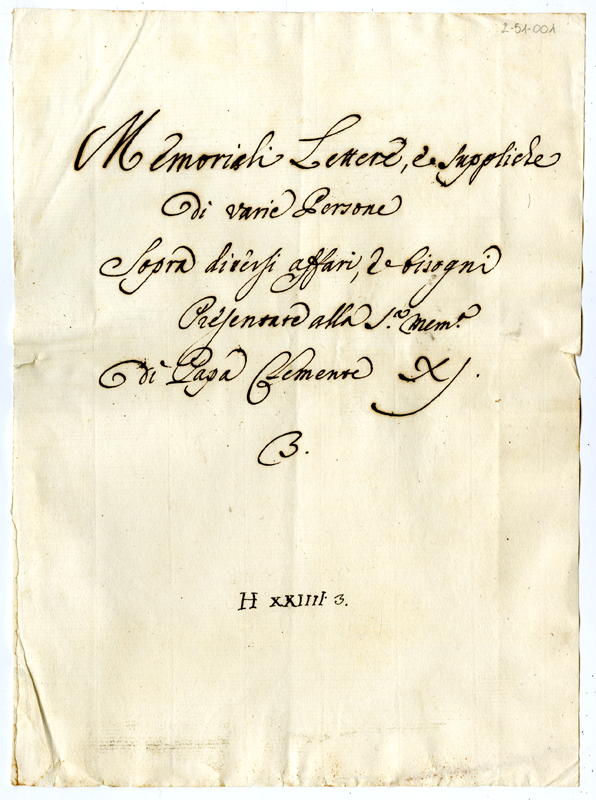 2-51-001
Memoriali Lettere, e suppliche
di varie Persone
Sopra diversi affari, e bisogni
Presentate alla S.ª Mem.ª
di Papa Clemente XJ.
3.
H XXIIII 3.